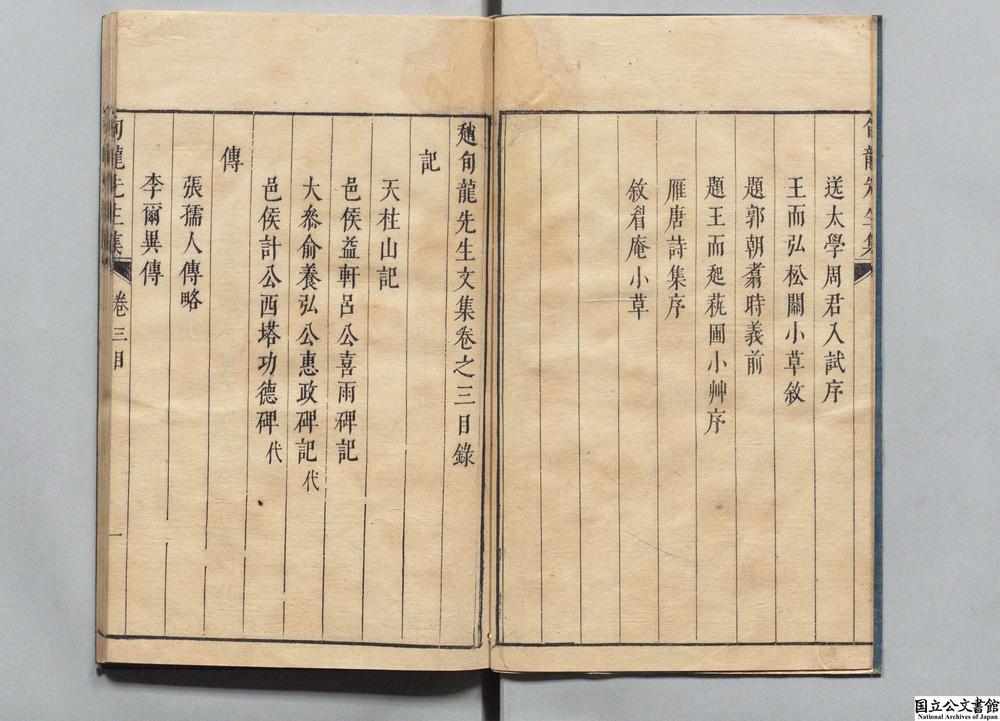 旬龍先生集
送太學周君入試序
王而弘松關小草敘
題郭朝翥時義前
題王而𨑔蓻圃小艸序
雁唐詩集序
敘眉庵小草
旬龍先生文集卷之三目錄
記
天柱山記
邑侯益軒呂公喜雨碑記
大叅俞養弘公惠政碑記 代
邑侯計公西塔功德碑 代
傳
張孺人傳略
李爾異傳
旬龍先生集 卷三目 一
国立公文書館
National Archives of Japan